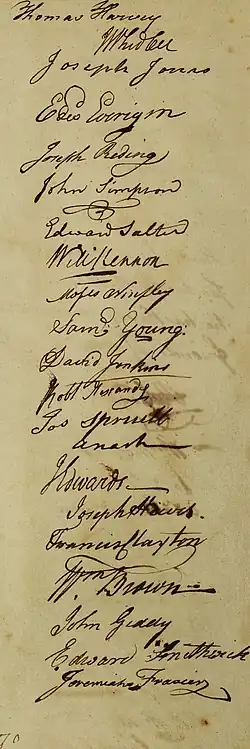 Thomas Harvey
Joseph Jones
Edwd
Joseph Reding
John Simpson
Edward Salter
Will: Lennon
Moses Winsley
Sam. Young.
David Jenkins
Robt
Jos Spruill
Edwards
Joseph Hewes.
Francis Clayton
Wm. Brown
John Geddy
Edward Smithwick
Jeremiah Frasier
70